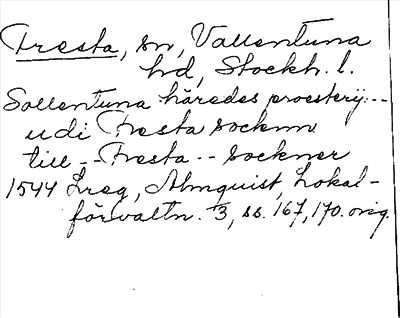 Fresta, sn, Vallentuna
hd, Stockh. l.
Sollentuna häredes proesterij:--
udi Fresta socknn
till -- Fresta -- sockner
1544 Lreg, Almquist, Lokal-
förvaltn. 3, ss. 167, 170. orig.